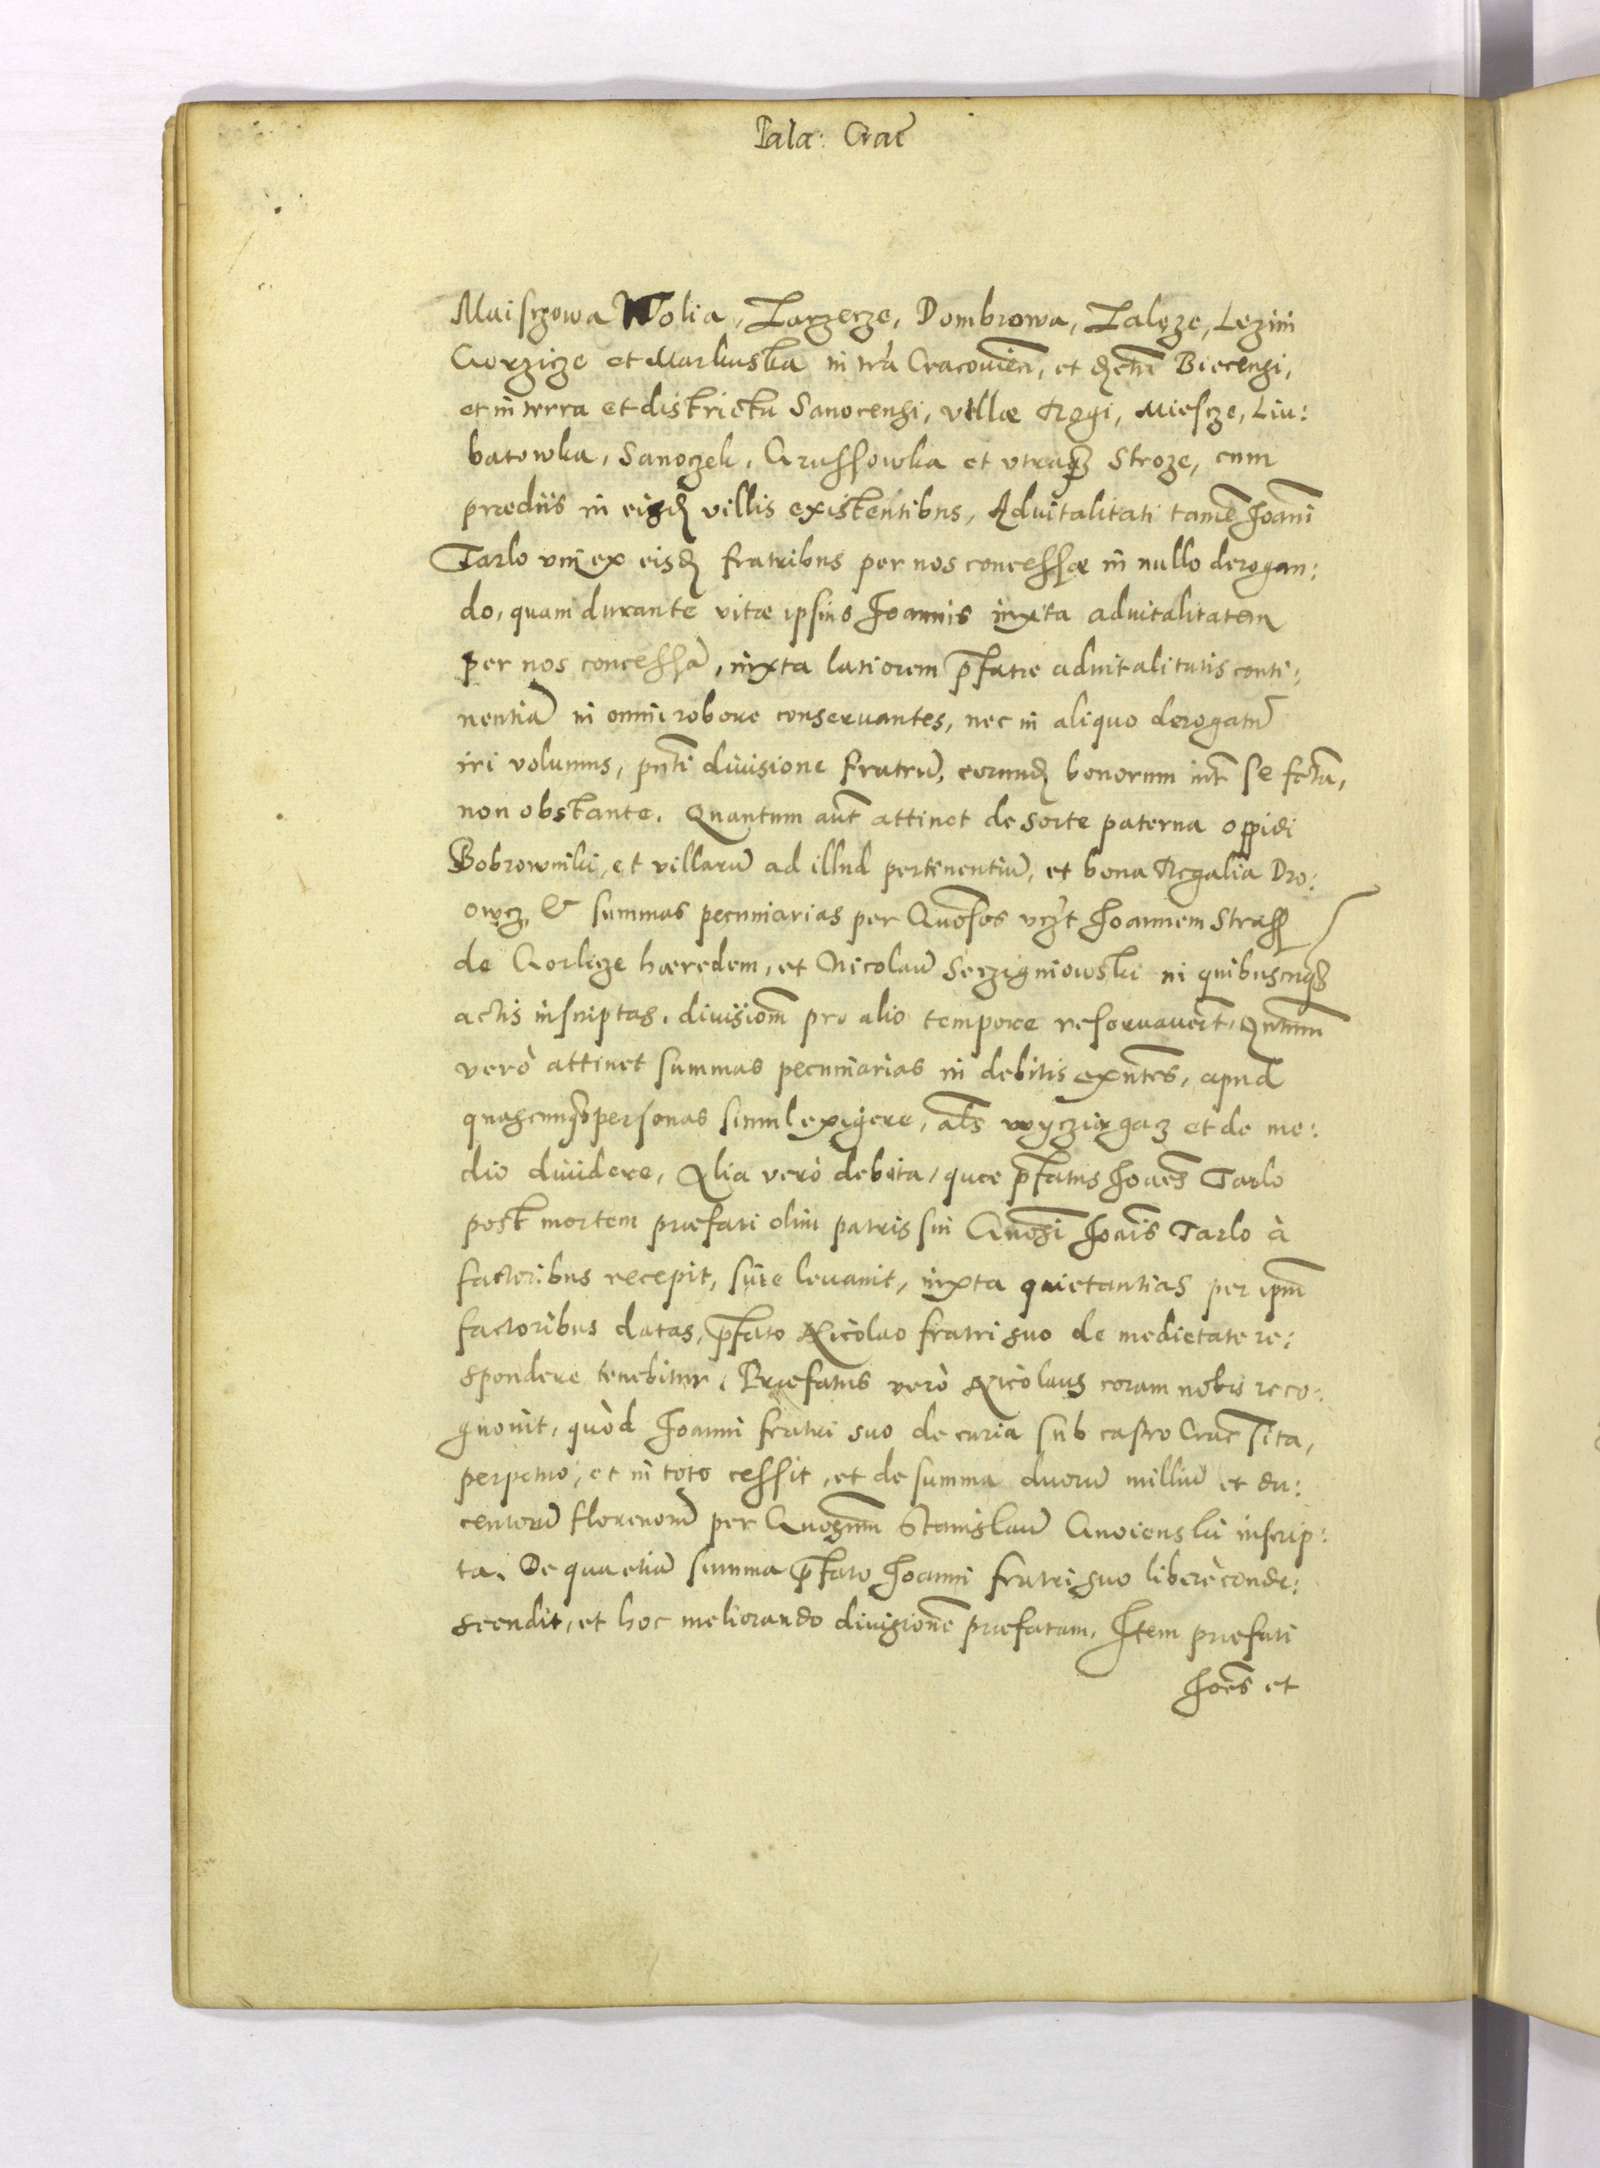 Pala: Crac̃
Maisczowa Wolia, Zarzecze, Dombrowa, Zalęze, Lezini
Gorzicze et Markuska in tr̃a Cracovien̄, et Biecensi,
et in terra et districtu Sanocensi, villæ Rogi, Miescze, Liu:
batowka, Sanoczek, Grussowka et utraq₃ Stroze, cum
prædiis in eisd̃ villis existentibus, Advitalitati tamē Joan̄i
Tarlo vni ex eisd̃ fratribus per nos concessæ in nullo derogan:
do, quam durante vitæ ipsius Joannis iuxta advitalitatem
per nos concessā, iuxta latiorem p̄fatæ advitalitatis conti:
nentiā in omni robore conseruantes, nec in aliquo derogatū
iri volumus, pñti diuisione fratrū, eorund̃ bonorum int̃ se fc̃ta,
non obstante. Quantum aūt attinet de sorte paterna oppidi
Bobrowniki, et villarū ad illud pertinentiū, et bona Regalia Dro:
owcz, & summas pecuniarias per Gn̄osos vc̃zt Joannem Strass
de Gorlicze hæredem, et Nicolaū Seczigniowski in quibuscuq₃
actis inscriptas, diuisiom̄ pro alio tempore reseruauer̄t, Qn̄tum
verò attinet summas pecuniarias in debitis exn̄tes, apud
quascunq₃ personas simul exigere, al̄s wycziągacz et de me:
dio diuidere, Alia verò debita, quæ p̄fatus Joaēs Tarlo
post mortem præfati olim patris sui Gn̄osi Joaīs Tarlo à
factoribus recepit, siue leuauit, iuxta quietantias per ipm̄
factoribus datas, p̄fato Nicolao fratri suo de medietate re:
spondere tenebitur. Præfatus verò Nicolaus coram nobis reco:
gnouit, quòd Joanni fratri suo de curia sub castro Crac̄ sita,
perpetuo, et in toto cessit, et de summa duorū milliū et du:
centorū florenorū per Gn̄osum Stanislaū Gnoienski inscrip:
ta. De qua etiā summa p̄fato Joanni fratri suo liberè conde:
scendit, et hoc meliorando diuisionē præfatam. Item præfati
Joēs et